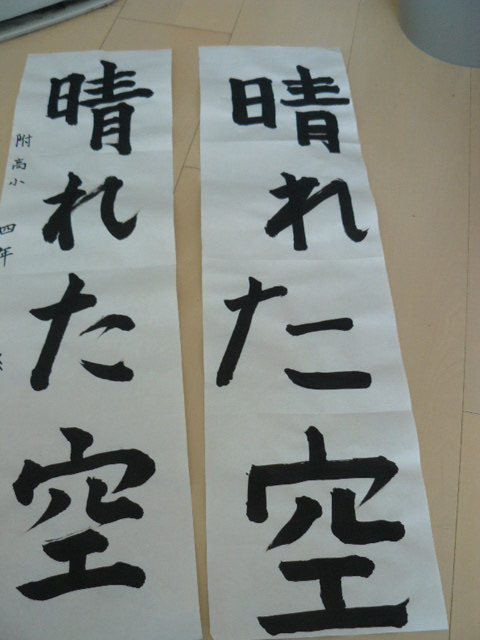 晴れた空
晴れた空
附高小 四年